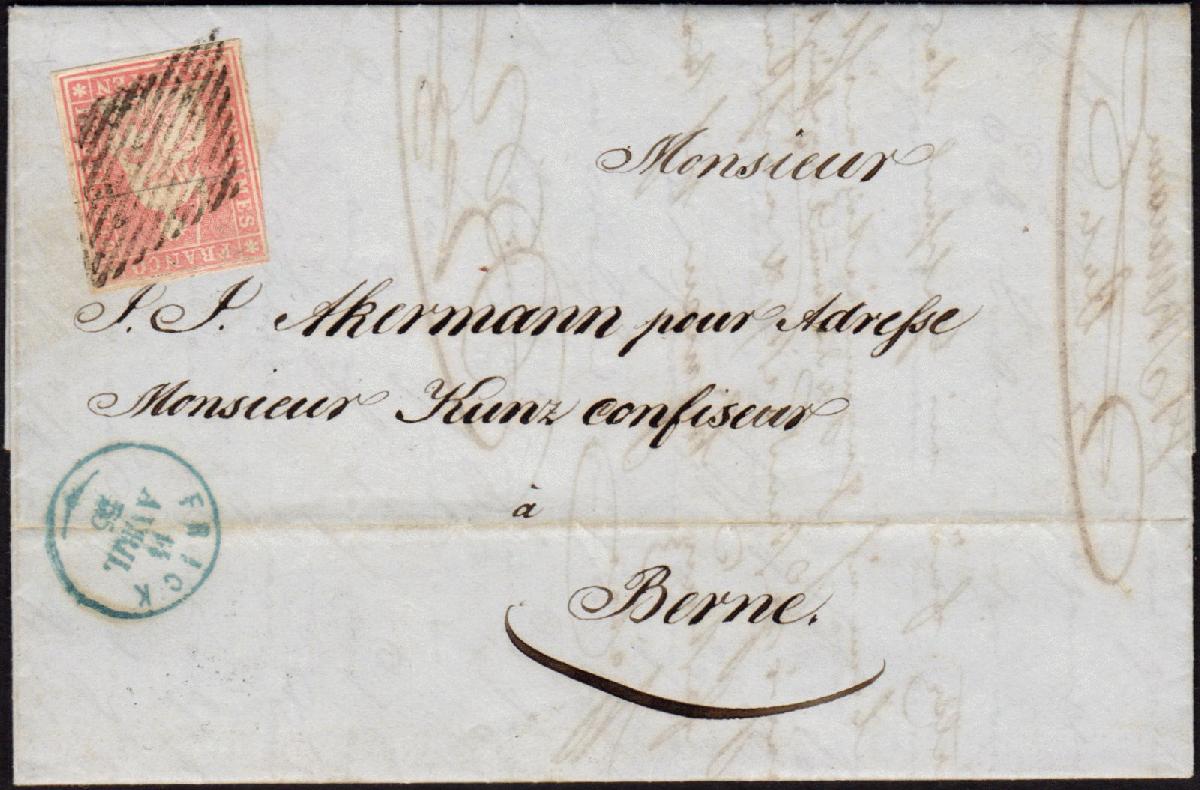 Monsieur
J. J. Akermann pour Adresse
Monsieur Kunz confiseur
à
Berne.
FRANCO
FRICK
11
AVRIL
55